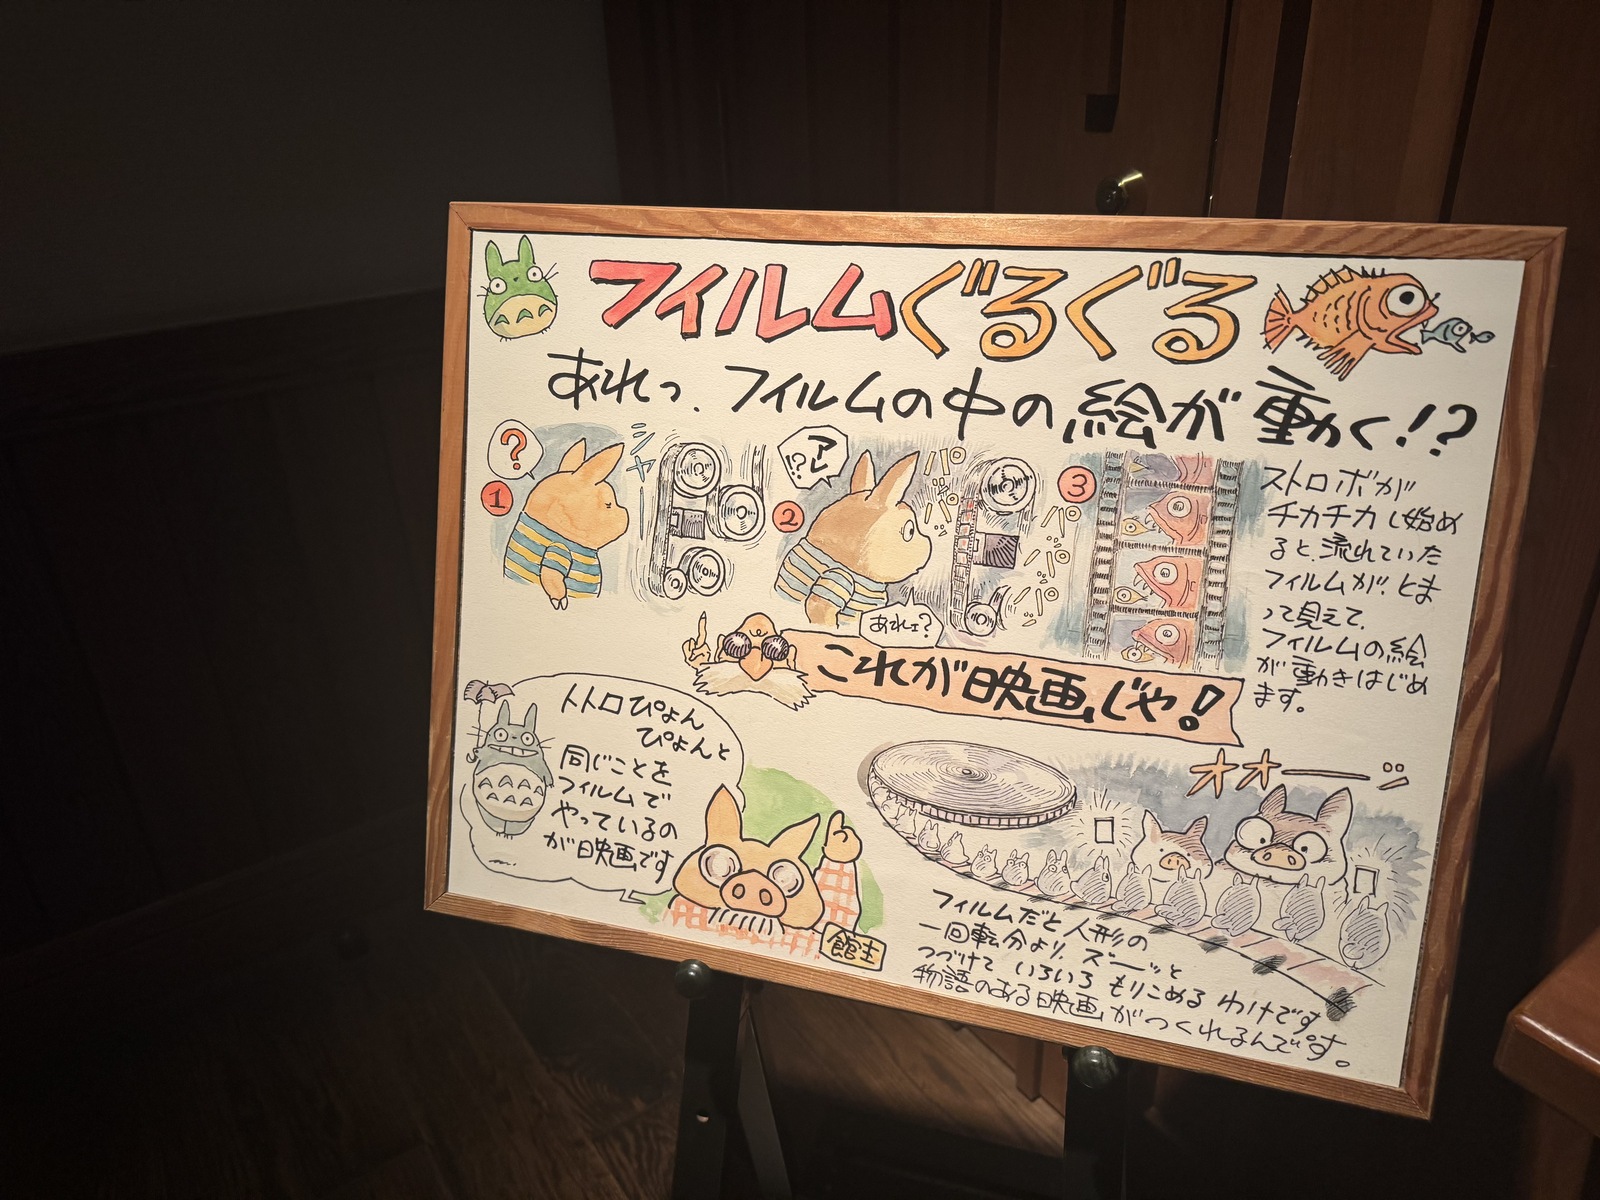 フィルムぐるぐる
あれっ、フィルムの中の絵が動く!?
?
1
シャー
アレ!?
2
3
ストロボが
チカチカし始め
ると、流れていた
フィルムが、とま
って見えて、
フィルムの絵
が動きはじめ
ます。
あれェ?
これが映画じゃ!
トトロぴょん
ぴょんと
同じことを
フィルムで
やっているの
が映画です
館主
オオーッ
フィルムだと人形の
一回転分より、ズーッと
つづけて いろいろ もりこめる わけです
物語のある映画がつくれるんです。